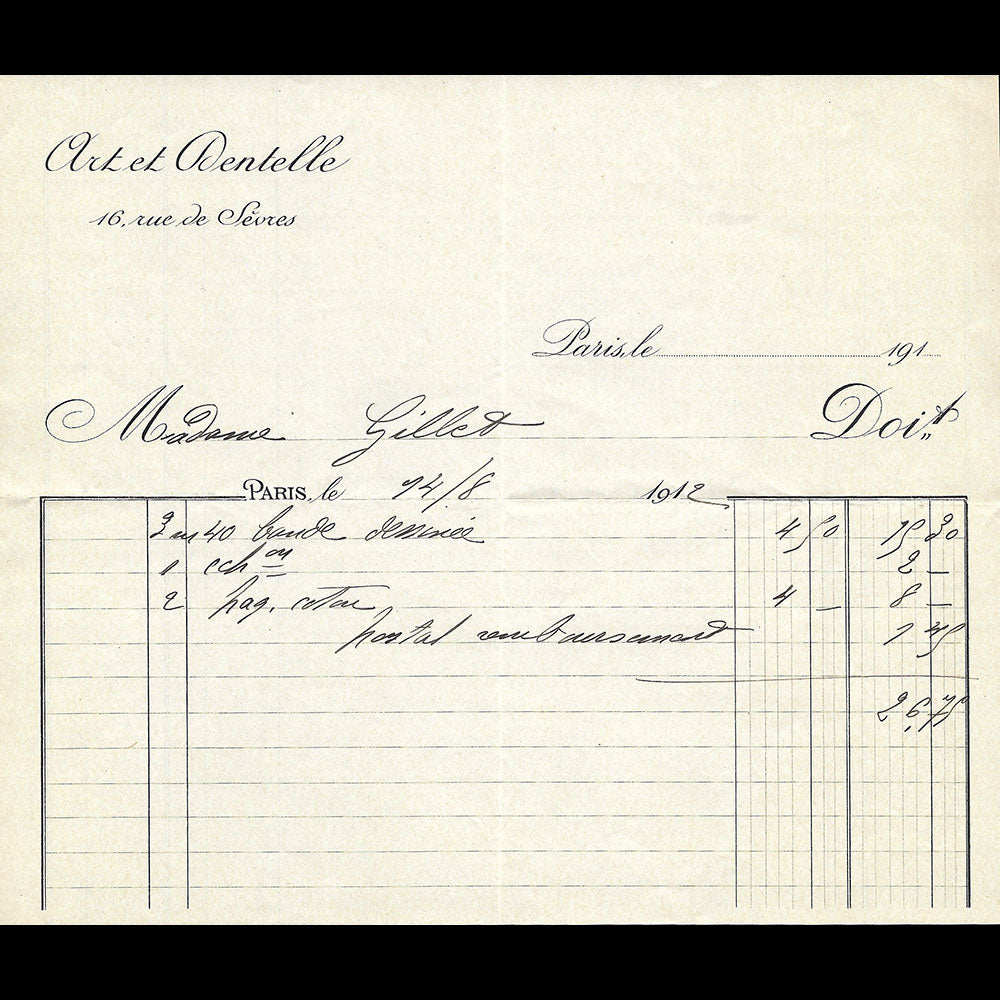 Art et Dentelle
16, rue de Sèvres
Paris, le 191
Madame Gillet Doit
PARIS, le 14/8 1912
3 m 40 bande dessinée 4 50 15 30
1 ech on 2 —
2 paq. coton 4 — 8 —
postal remboursement 1 45
26,75